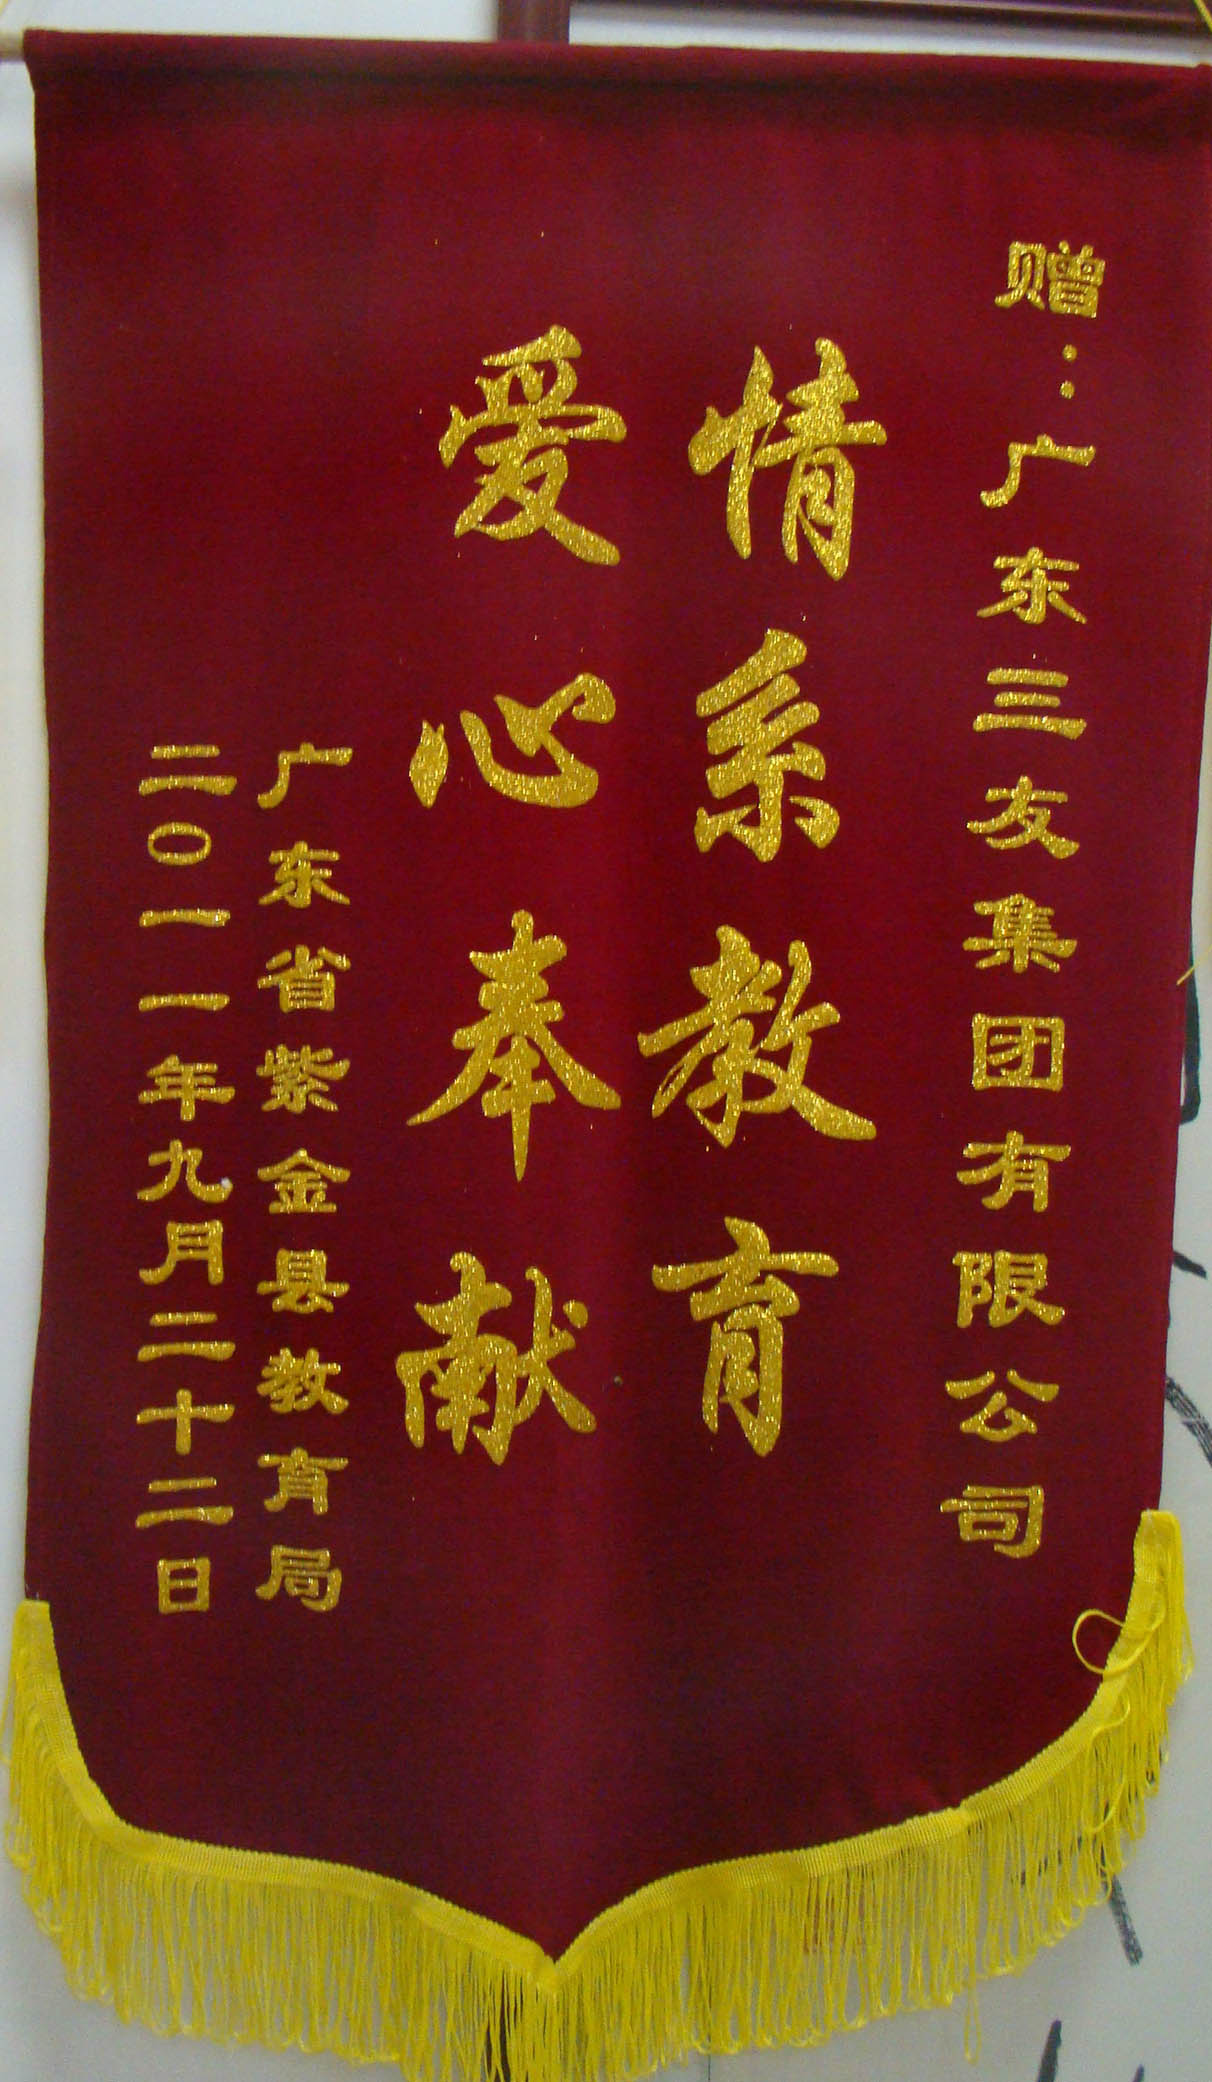 赠：广东三友集团有限公司
情系教育
爱心奉献
广东省紫金县教育局
二〇一一年九月二十二日